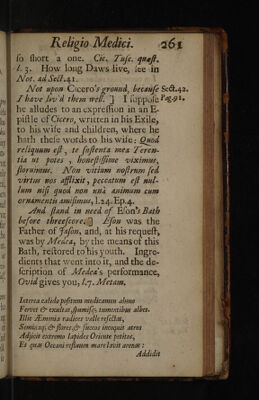 Religio Medici. 261
so short a one. Cic. Tusc. quæst.
l. 3. How long Daws live, see in
Not. ad Sect. 41.
Not upon Cicero's ground, because Sect. 42.
I have liv'd them well. ] I suppose Pag. 91.
he alludes to an expression in an E-
pistle of Cicero, written in his Exile,
to his wife and children, where he
hath these words to his wife: Quod
reliquum est, te sustenta mea Teren-
tia ut potes, honestissime viximus,
floruimus. Non vitium nostrum sed
virtus nos afflixit, peccatum est nul-
lum nisi quod non unà animum cum
ornamentis amisimus, l. 24. Ep. 4.
And stand in need of Eson's Bath
before threescore. ] Eson was the
Father of Jason, and, at his request,
was by Medea, by the means of this
Bath, restored to his youth. Ingre-
dients that went into it, and the de-
scription of Medea's performance,
Ovid gives you, l. 7. Metam.
Interea calido positum medicamen aheno
Fervet & exultat, spumisq; tumentibus albet.
Illic Æmonia radices valle resectas,
Seminaq; & flores, & succos incoquit atros
Adjicit extremo lapides Oriente petitos,
Et quas Oceani refluum mare lavit arenas:
Addidit